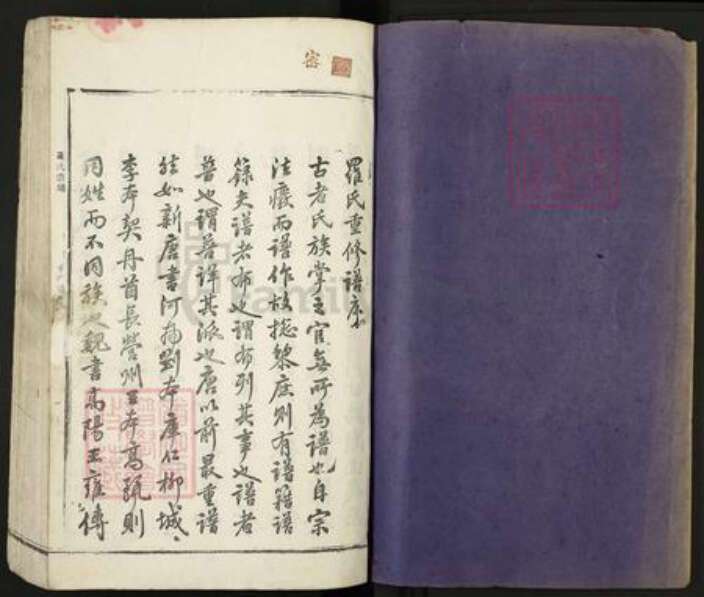 密
羅氏重修譜序
古者氏族掌之官無所為譜也自宗
法廢而譜作故摠黎庶則有譜籍譜
錄夫譜者布也謂布列其事也譜者
普也謂普詳其派也唐以前最重譜
然如新唐書河南劉本庫仁柳城
李本契丹酋長營州王本高麗則
同姓而不同族也魏書高陽王雍傳
羅氏宗譜